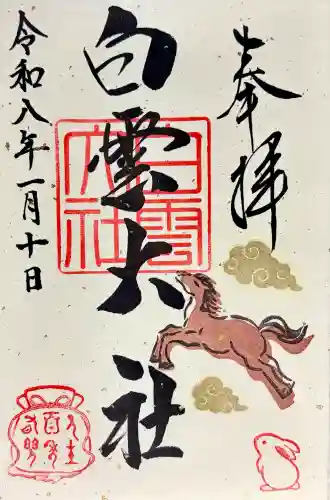 奉拝
白雲大社
令和八年一月十日
白雲大社